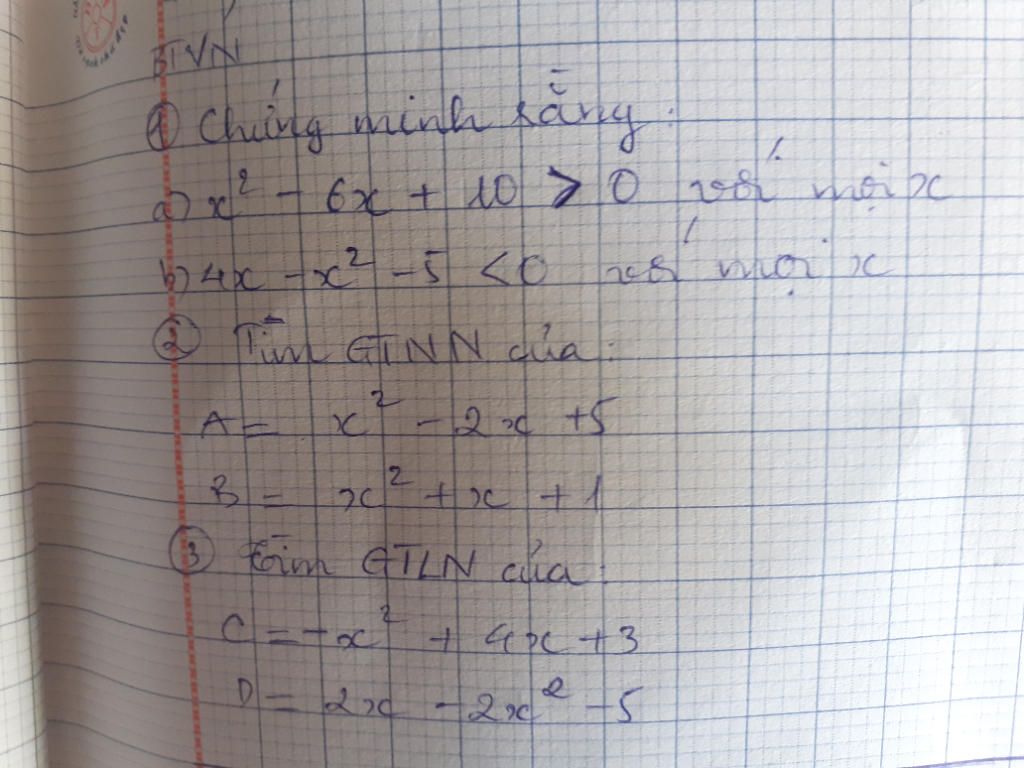 BTVN
① Chứng minh rằng:
a) x² - 6x + 10 > 0 với mọi x
b) 4x - x² - 5 < 0 với mọi x
② Tìm GTNN của:
A = x² - 2x + 5
B = x² + x + 1
③ Tìm GTLN của:
C = -x² + 4x + 3
D = 2x - 2x² - 5